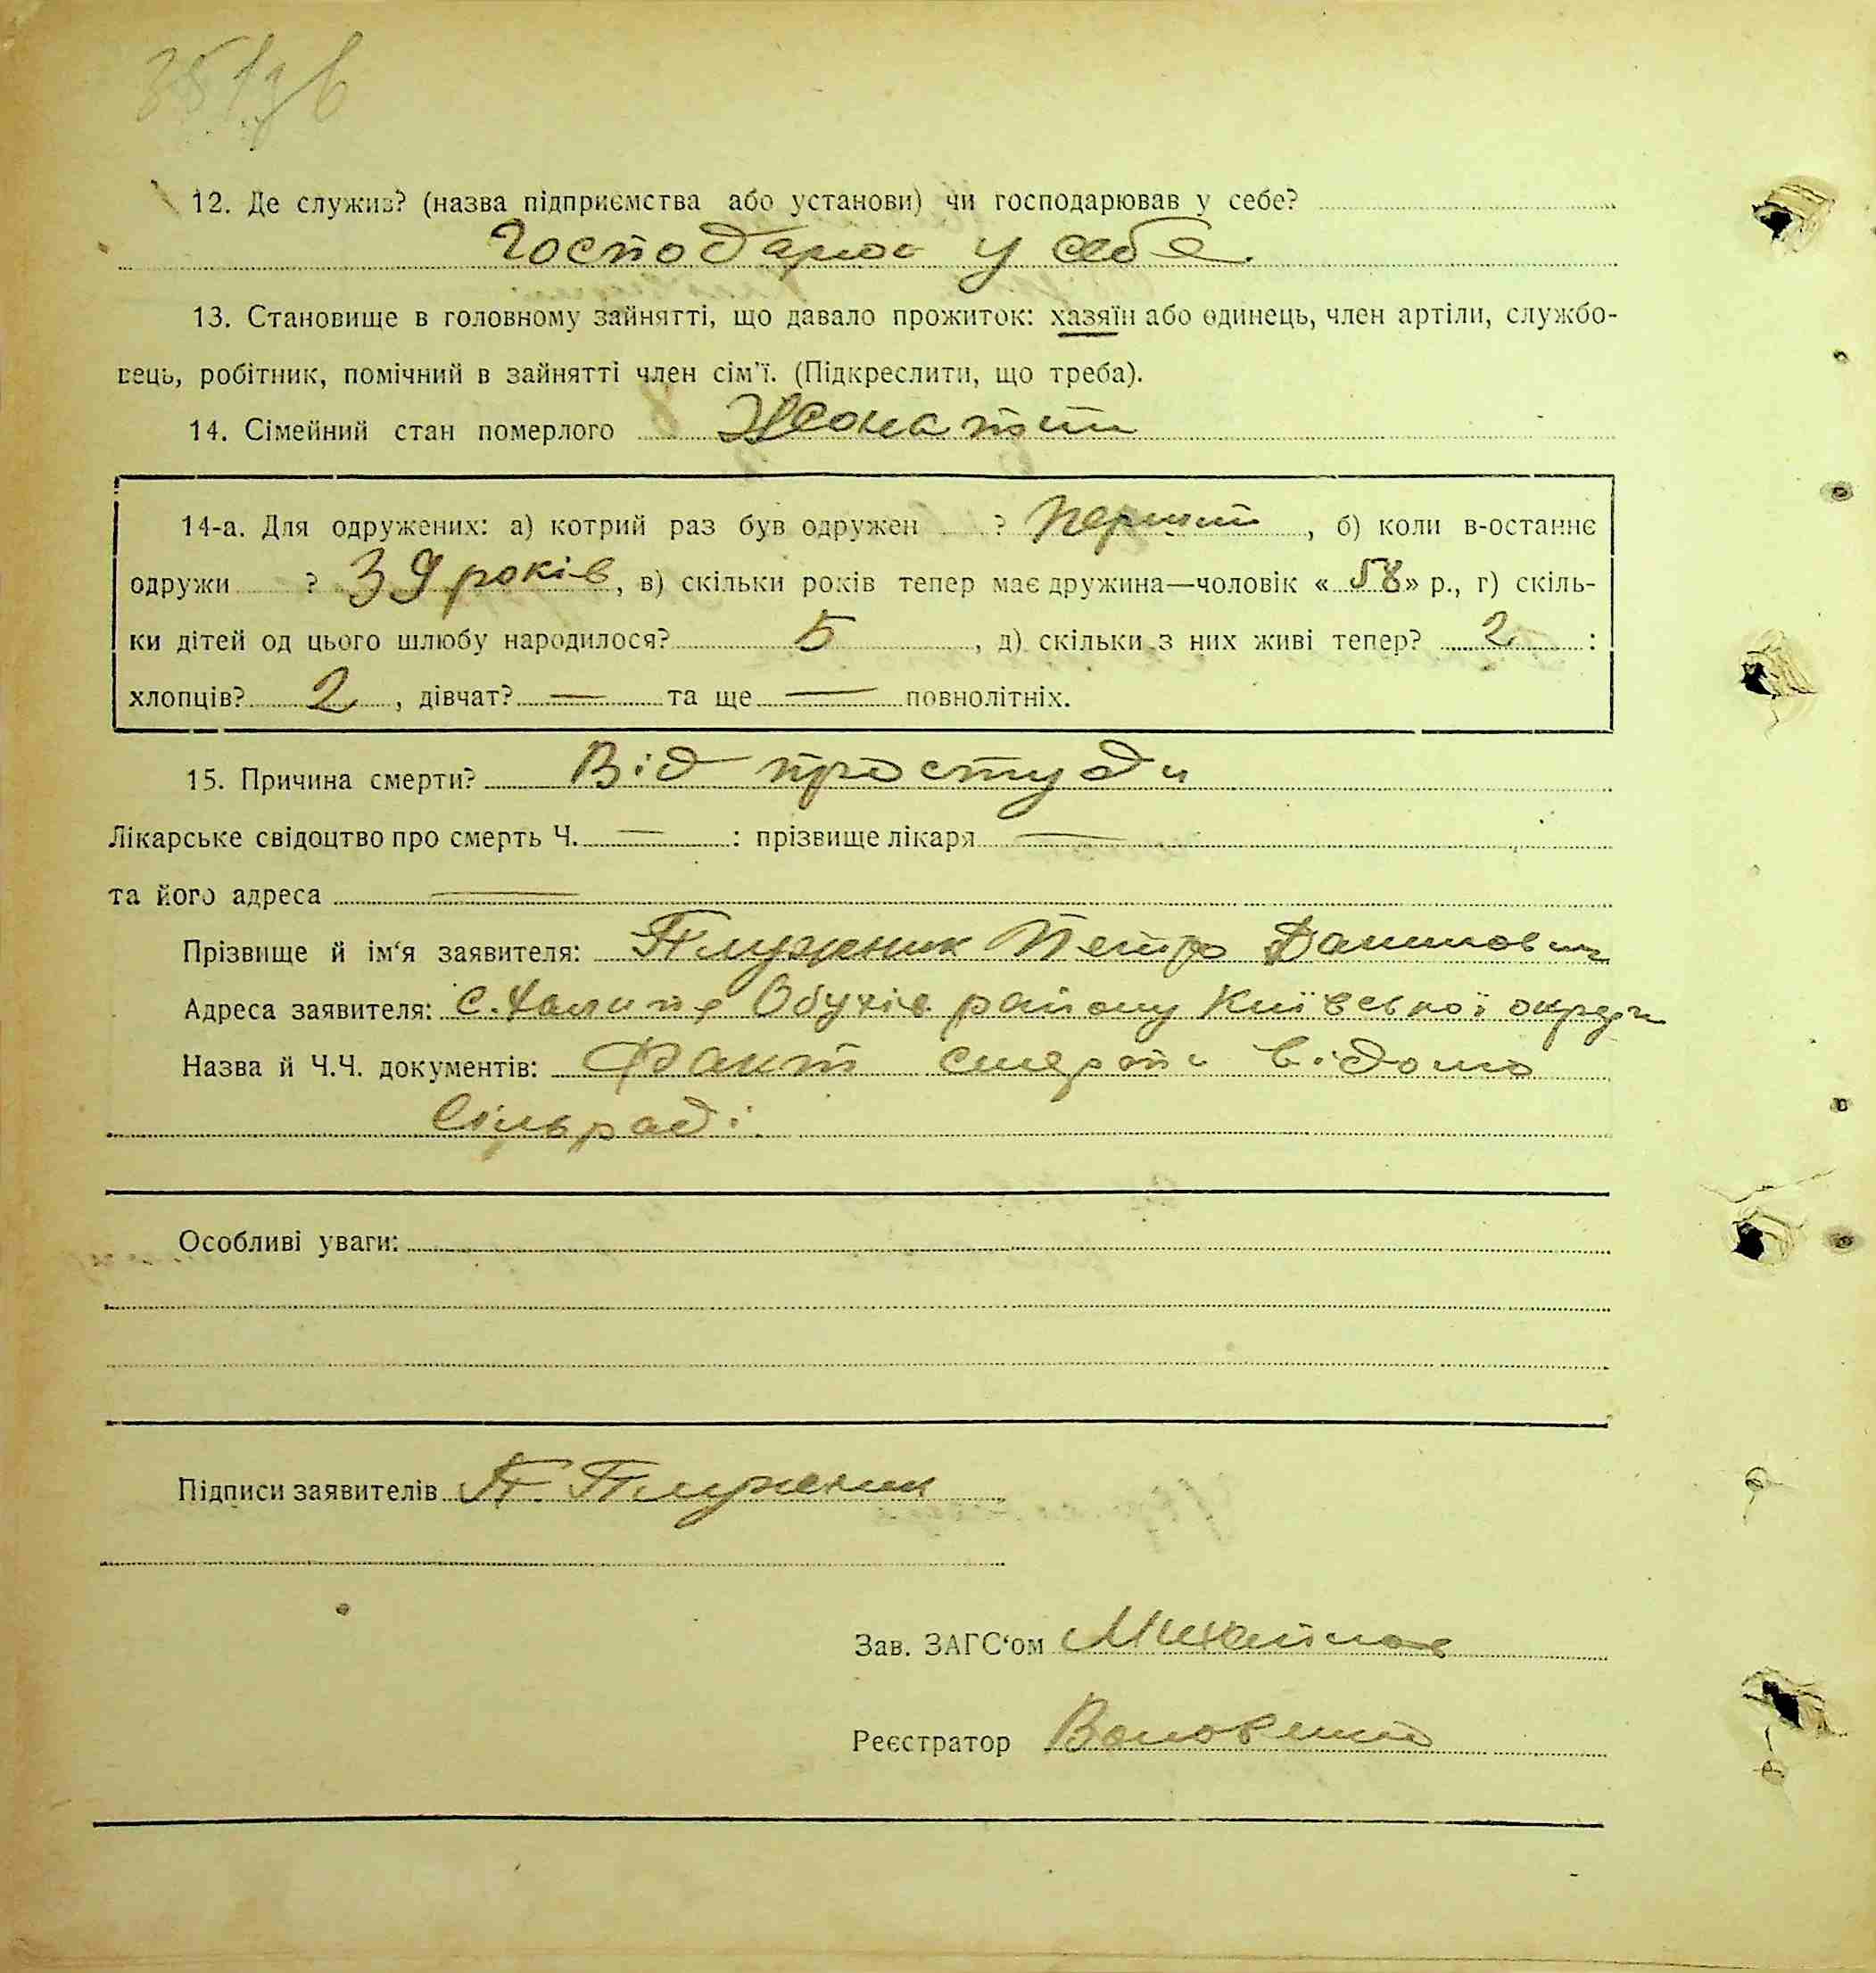 35
12. Де служив? (назва підприємства або установи) чи господарював у себе?
Господарює у себе.
13. Становище в головному зайнятті, що давало прожиток: хазяїн або одинець, член артіли, службо-
вець, робітник, помічний в зайнятті член сім'ї. (Підкреслити, що треба).
14. Сімейний стан померлого Жонатий
14-а. Для одружених: а) котрий раз був одружен ? Перший, б) коли в-останнє
одружи ? 39 років, в) скільки років тепер має дружина—чоловік «58» р., г) скіль-
ки дітей од цього шлюбу народилося? 5, д) скільки з них живі тепер? 2 :
хлопців? 2, дівчат? — та ще — повнолітніх.
15. Причина смерти? Від простуди
Лікарське свідоцтво про смерть Ч. — : прізвище лікаря —
та його адреса —
Прізвище й ім'я заявителя: Плужник Петро Данилович
Адреса заявителя: с. Халипʼя Обухів району Київської округи
Назва й Ч.Ч. документів: Факт смерти відомо
Сільраді.
Особливі уваги:
Підписи заявителів П. Плужник
Зав. ЗАГС'ом
Реєстратор